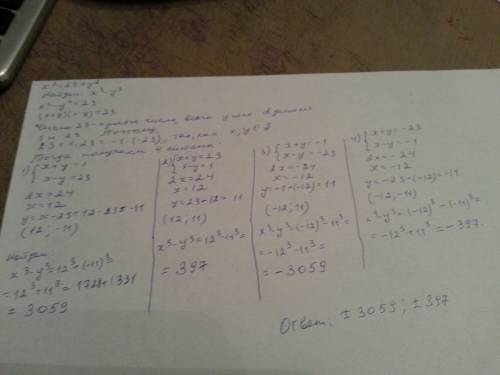 x² = 23 + y²
Найти: x³ - y³
x² - y² = 23
(x+y)(x-y) = 23
Число 23 - простое число, всего у него 2 делителя
1 и 23. Поэтому
23 = 1·23 = -1·(-23), так как x, y ∈ Z
Тогда получаем 4 системы.
1) { x+y = 1
x-y = 23
2x = 24
x = 12
y = x-23 = 12-23 = -11
(12; -11)
Найдём:
x³-y³ = 12³-(-11)³
= 12³+11³ = 1728+1331
= 3059
2) { x+y = 23
x-y = 1
2x = 24
x = 12
y = 23-12 = 11
(12; 11)
x³-y³ = 12³-11³ =
= 397
3) { x+y = -1
x-y = -23
2x = -24
x = -12
y = -1-(-12) = 11
(-12; 11)
x³-y³ = (-12)³-11³ =
= -12³-11³ =
= -3059
4) { x+y = -23
x-y = -1
2x = -24
x = -12
y = -23-(-12) = -11
(-12; -11)
x³-y³ = (-12)³-(-11)³ =
= -12³+11³ = -397.
Ответ: ±3059; ±397